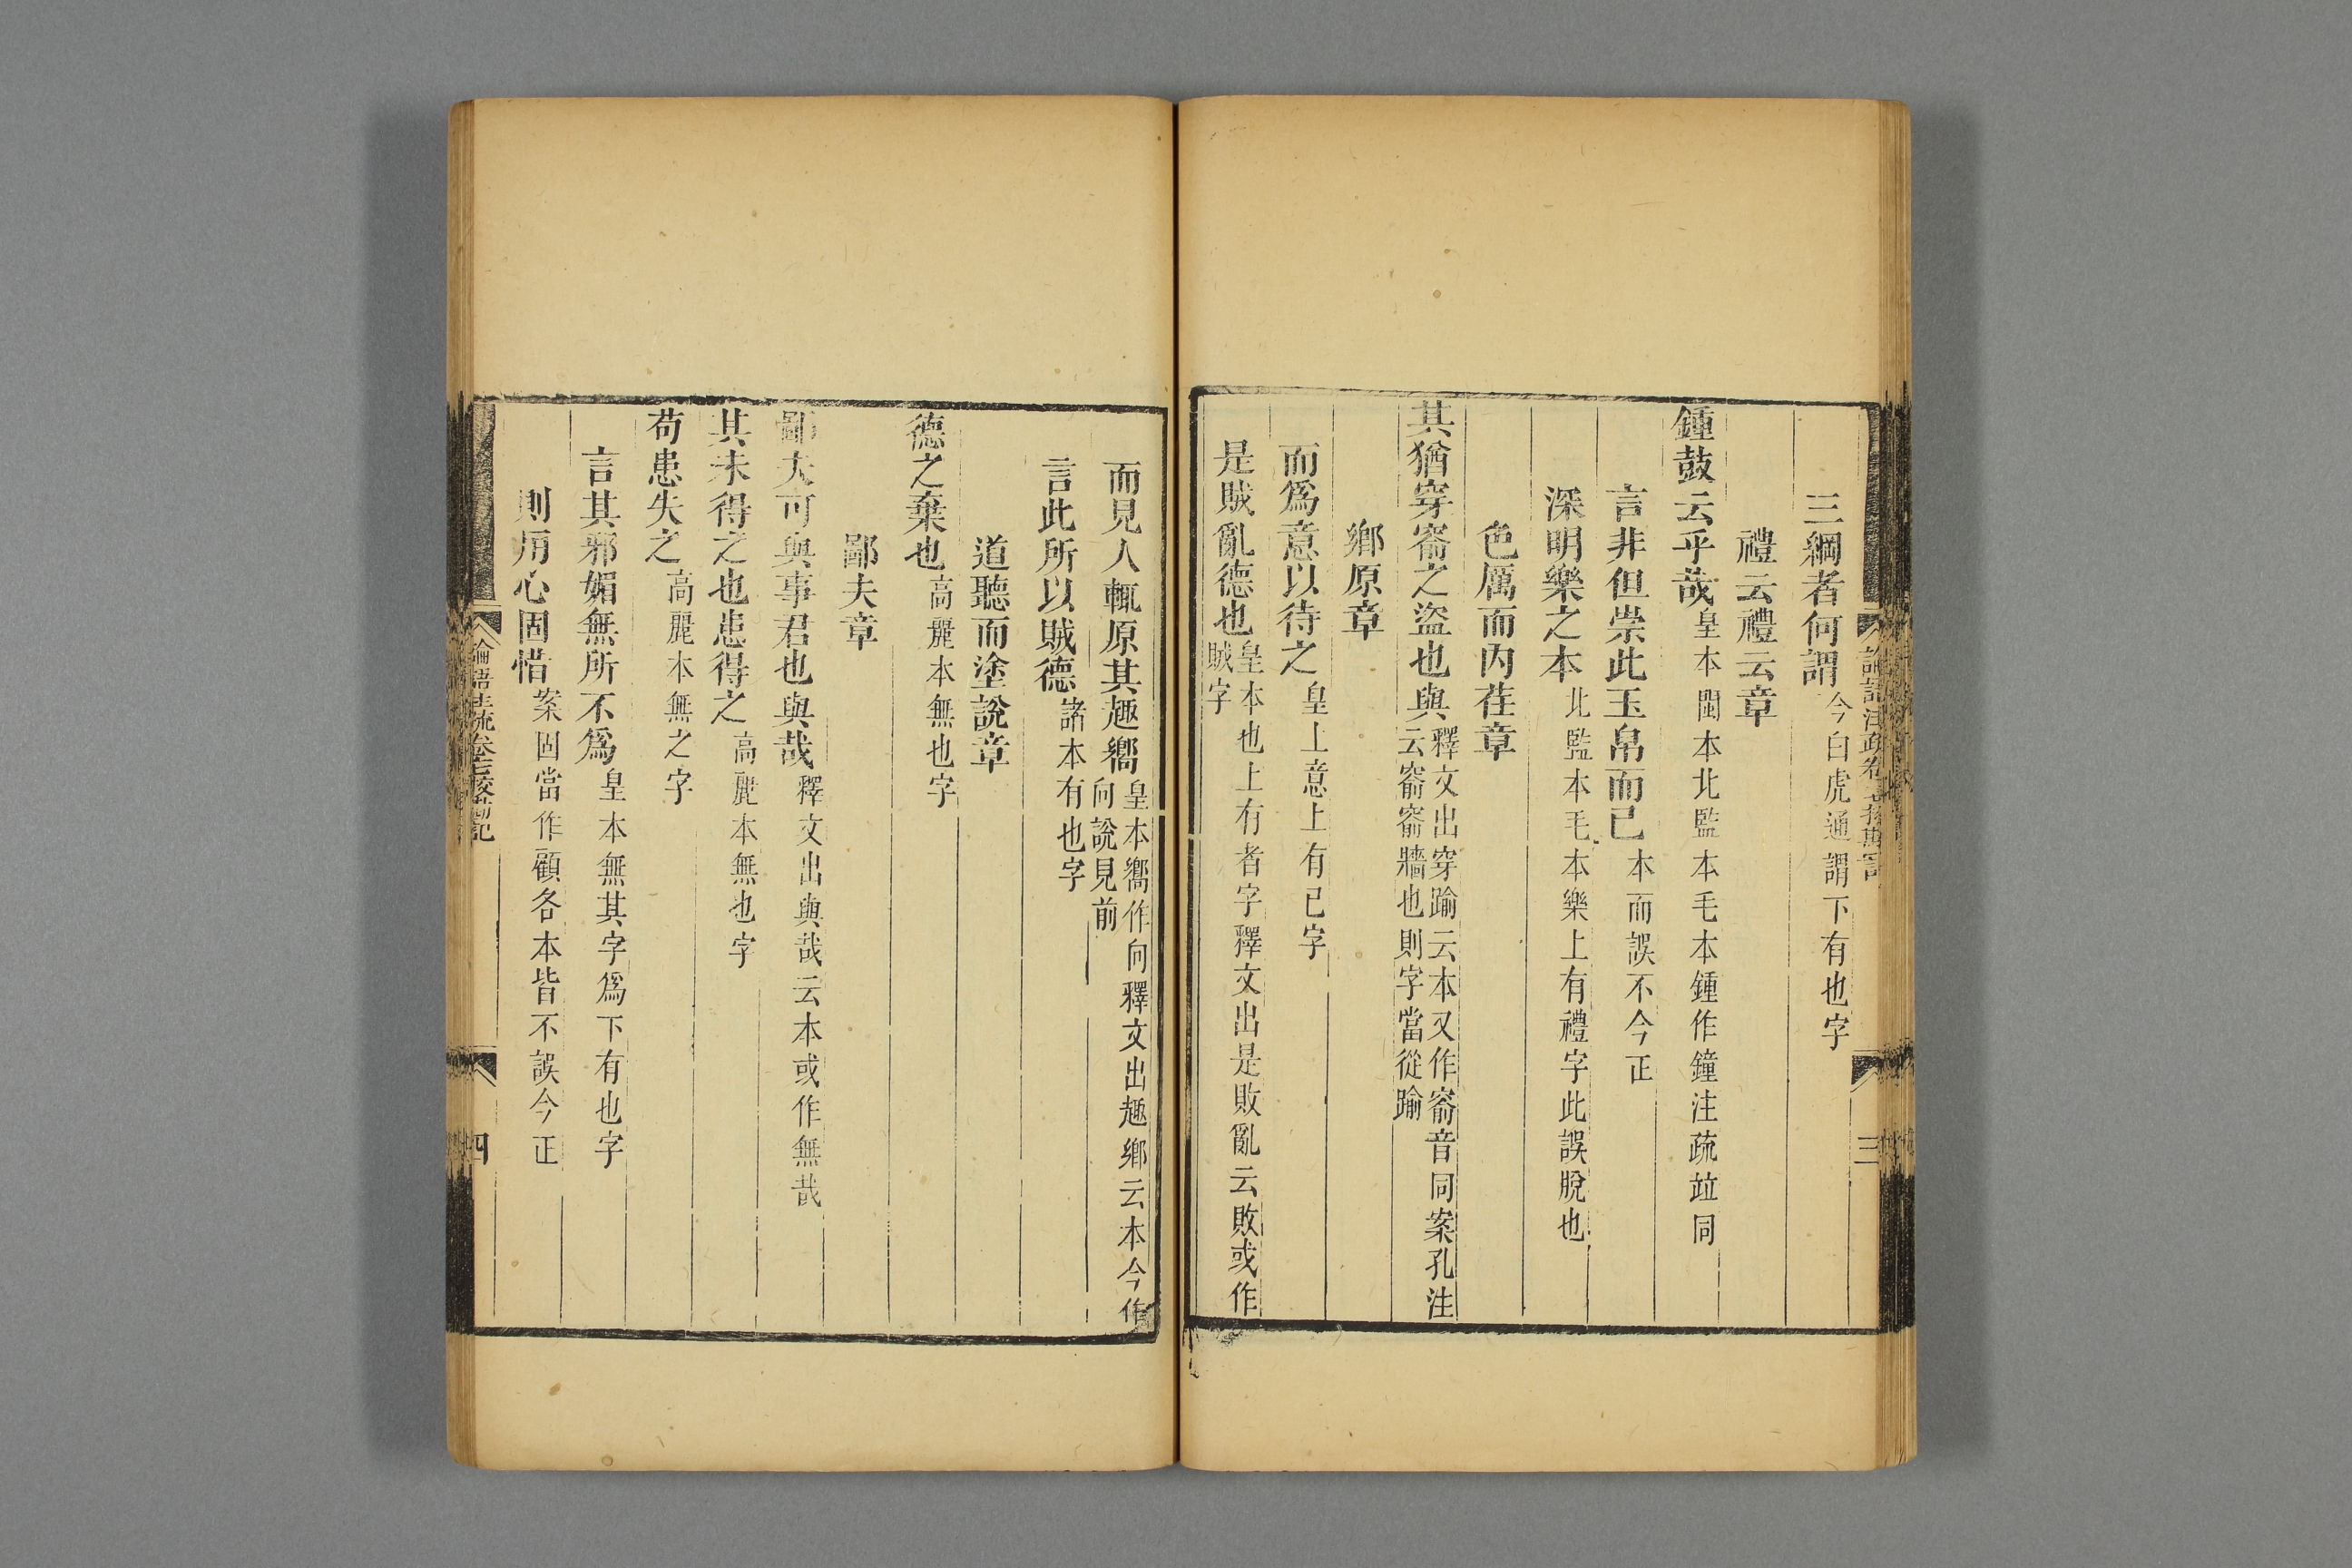 三綱者何謂今白虎通謂下有也字
禮云禮云章
鍾鼓云乎哉皇本閩本北監本毛本鍾作鐘注疏竝同
言非但崇此玉帛而已本而誤不今正
深明樂之本北監本毛本樂上有禮字此誤脫也
色厲而內荏章
其猶穿窬之盜也與釋文出穿踰云本又作窬音同案孔注
云窬窬牆也則字當從踰
鄉原章
而爲意以待之皇上意上有已字
是賊亂德也皇本也上有者字釋文出是敗亂云敗或作
賊字
三
而見人輒原其趣嚮皇本嚮作向釋文出趣鄉云本今作
向說見前
言此所以賊德諸本有也字
道聽而塗說章
德之棄也高麗本無也字
鄙夫章
鄙夫可與事君也與哉釋文出與哉云本或作無哉
其未得之也患得之高麗本無也字
苟患失之高麗本無之字
言其邪媚無所不爲皇本無其字爲下有也字
則用心固惜案固當作顧各本皆不誤今正
論語注疏卷十七校勘記
四